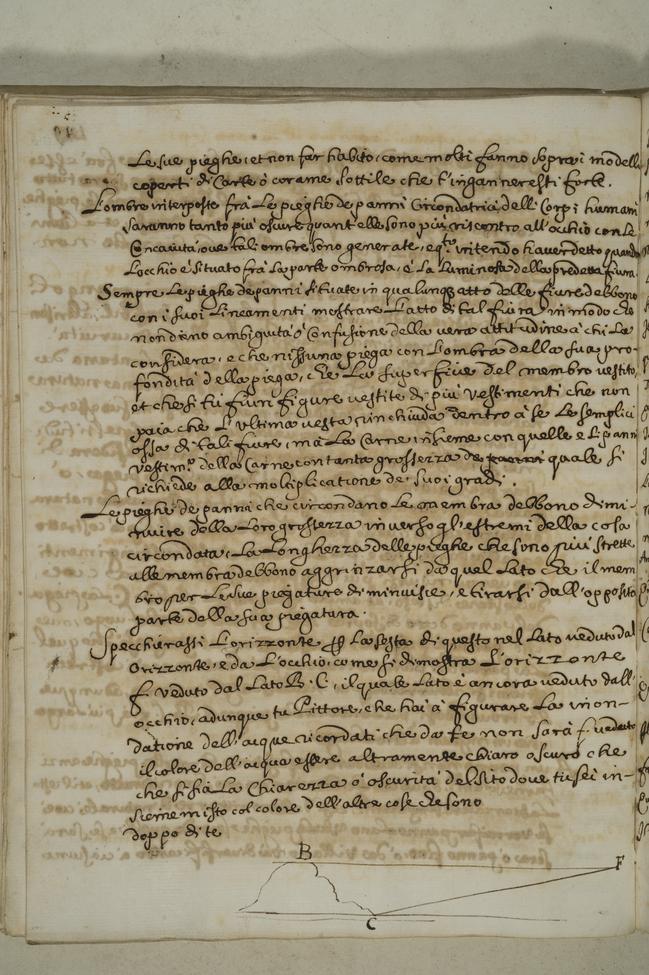 Le sue pieghe, et non far habito, come molti fanno sopra i modelli
coperti di Carte ò corame sottile che t'inganneresti forte.
L'ombre interposte frà Le pieghe de panni Circondatrici delli Corpi humani
saranno tanto più oscure quant'elle sono più riscontro all'occhio con Le
Concavità, ove tali ombre sono generate, e q.to intendo haver detto quando
L'occhio è situato frà La parte ombrosa, è La Luminosa della predetta fiura.
Sempre Le pieghe de panni situate in qualunq3 atto delle fiure debbono
con i suoi Lineamenti mostrare L'atto di tal fiura in modo che
non dieno ambiguità ò Confusione della vera attitudine à chi La
considera, e che nissuna piega con L'ombra della sua pro-
fondità della piega, cioè La superfitie del membro vestito,
et che si tù fiuri figure vestite di più vestimenti che non
paia che L'ultima vesta rinchiuda dentro à se Le semplici
ossa di tali fiure, mà La Carne insieme con quelle e li panni
vestim.to della Carne con tanta grossezza quale si
richiede alla moltiplicatione de' suoi gradi.
Le pieghe de panni che circondano Le membra debbono dimi-
nuire della Loro grossezza inverso gl'estremi della cosa
circondata, La Longhezza delle pieghe che sono più strette
alle membra debbono aggrinzarsi da quel Lato che il mem
bro per Le sue piegature diminuisce, e tirarsi dall'opposita
parte della sua piegatura.
Specchierassi L'orizzonte p La sesta di questo nel Lato veduto dal
Orizzonte, e da L'occhio, come si dimostra L'orizzonte
f. veduto dal Lato B. C, il quale Lato è ancora veduto dall'
occhio, adunque tu Pittore, che hai à figurare La inon-
datione dell'acque ricordati che da te non sarà veduto
il colore dell'acqua essere altramente chiaro ò scuro che
che si sia La Chiarezza ò oscurità del sito dove tu sei in-
sieme misto col colore dell'altre cose che sono
doppo di te
B
F
C